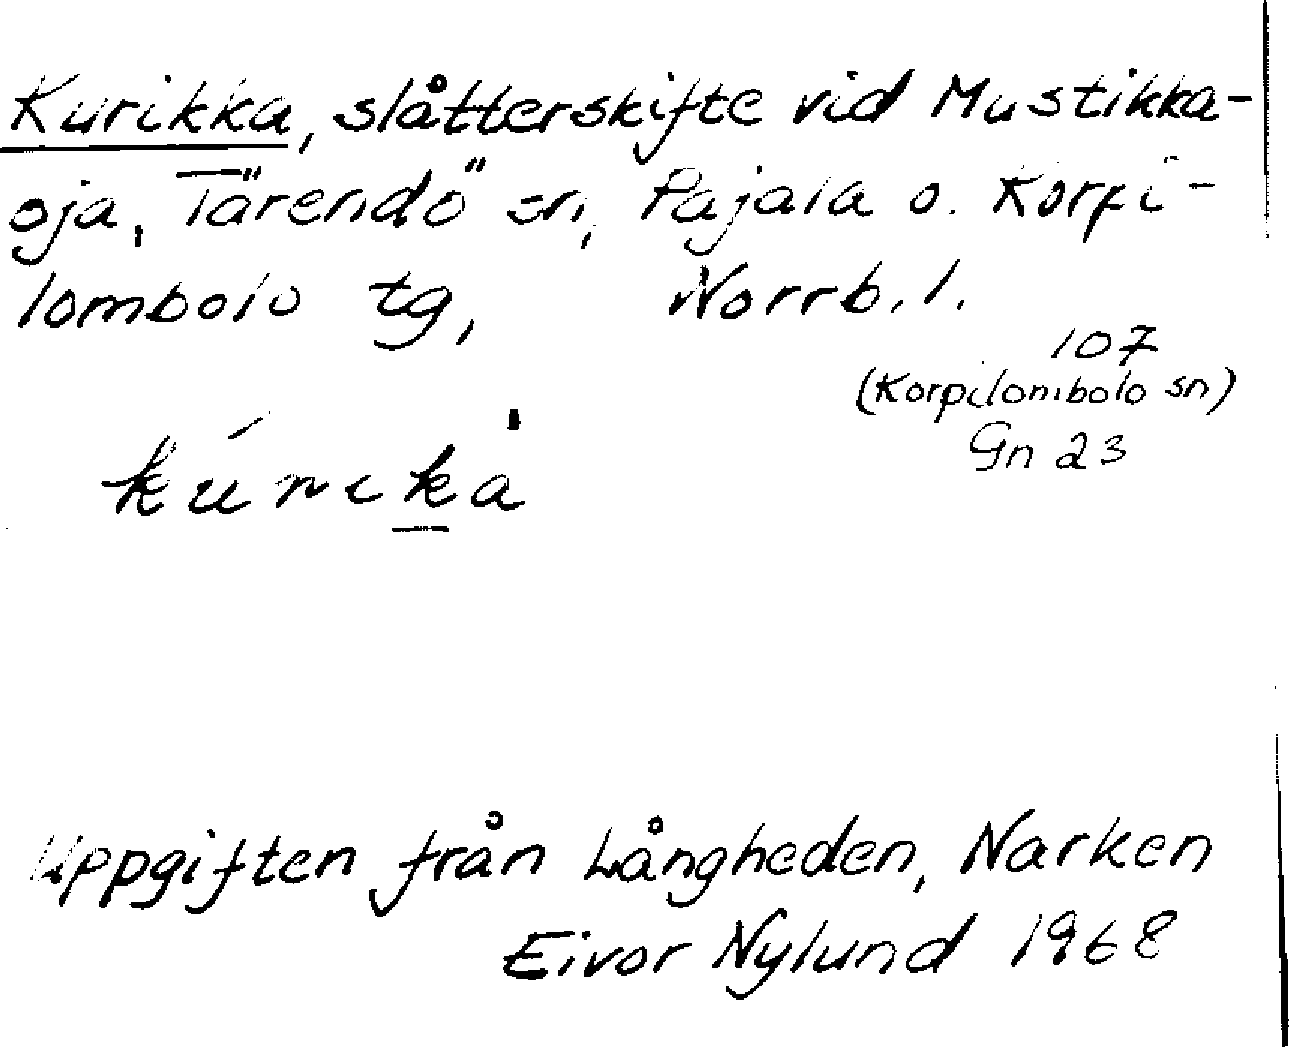 Kurikka, slåtterskifte vid Mustikka-
oja, Tärendö sn, Pajala o. Korpi-
lombolo tg, Norrb. l.
107
(Korpilombolo sn)
Gn 23
Uppgiften från Långheden, Narken
Eivor Nylund 1968